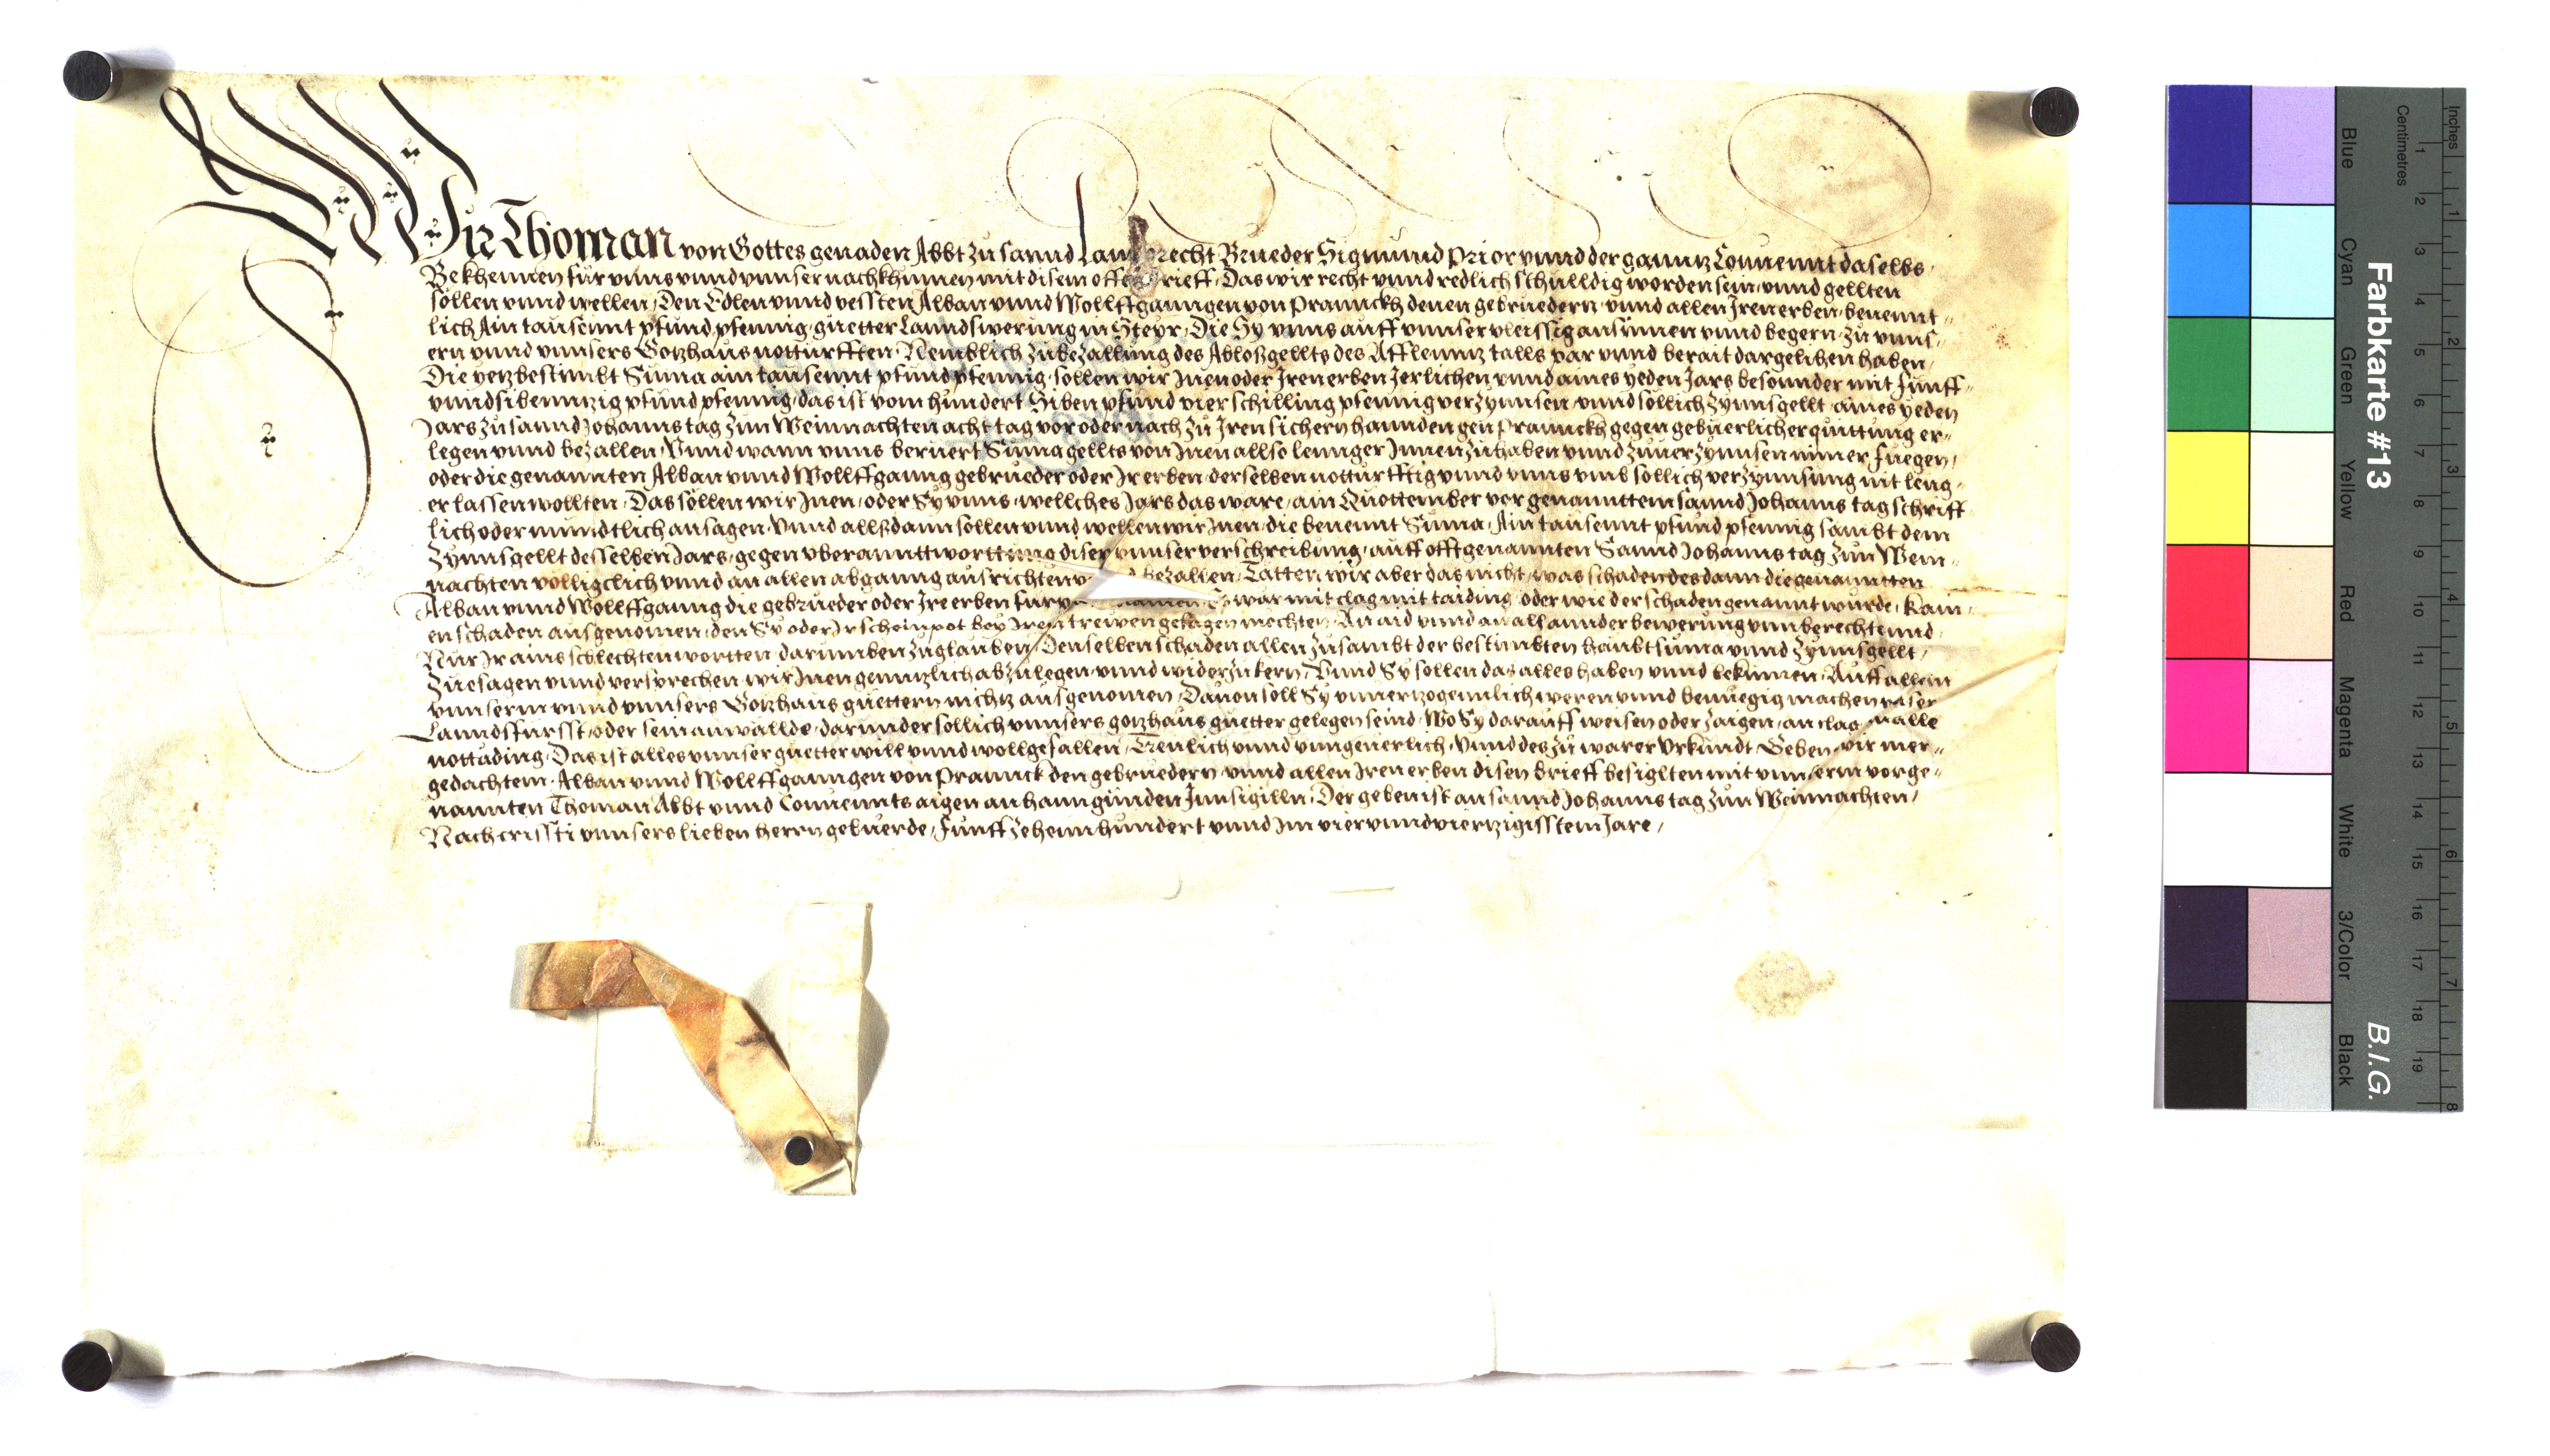 Wir Thoman von Gottes genaden Abbt zu sannd Lambrecht Brueder Sigmund Prior vnnd der gannz Conuennt daselbs
Bekhennen für vnns vnnd vnnser nachkhumen mit disem offen brieff, Das wir recht vnnd redlich schulldig worden sein, vnnd gellten
sollen vnnd wellen, Den Edlen vnnd vessten Alban vnnd Wollffganngen von Prannckh denen gebruedern, vnnd allen Iren erben, benennt-
lich Ain tausennt pfund pfennig, guetter Lanndswerung in Steyr, Die Sy vnns auff vnnser vleissig ansynnen vnnd begern, zu vnns-
ern vnnd vnnsers Gotzhaus notturfften, Nemblich zu bezallung des Abloßgellts des Afflennz talls par vnnd berait dargelihen haben,
Die yetzbestimbt Suma ain tausennt pfund pfennig, sollen wir Inen oder Iren erben Jerlichen vnnd aines yeden Jars besonnder mit funff-
vnndsibennzig pfund pfennig, das ist vom hundert Siben pfund vier schilling pfennig verzynnsen, vnnd sollich zynnsgellt, aines yeden
Jars zu sannd Johanns tag zun Weinnachten acht tag vor oder nach zu Iren sichern hannden gen Prannckh gegen gebuerlicher quittung er-
legen vnnd bezallen, Vnnd wann vnns beruert Suma gellts von Inen allso lennger Innen zu haben vnnd zuuerzynnsen nimer fuegen,
oder die genannten Alban vnnd Wollffganng gebrueder oder Ir erben, derselben notturfftig vnnd vnns vmb sollich verzynnsung nit leng-
er lassen wollten, Das sollen wir Inen, oder Sy vnns, wellches Jars das ware, ain Quottember vor genannttem sannd Johanns tag schrifft-
lich oder mundtlich ansagen, Vnnd allßdann sollen vnnd wellen wir Inen, die benennt Suma, Ain tausennt pfund pfennig sambt dem
Zynnsgellt desselben Jars, gegen vberannttworttung diser vnnser verschreibung, auff offtgenannten Sannd Johanns tag zun Wein-
nachten volligclich vnnd an allen abganng ausrichten bezallen, Tatten wir aber das nicht, was schaden des dann die genanntten
Alban vnnd Wollffganng die gebrueder oder Ire erben fur namen Es war mit clag mit taiding, oder wie der schaden genannt wurde, kain-
en schaden ausgenomen, den Sy oder Ir schein pot bey Iren trewen gesagen mechten, An aid vnnd an all annder bewerung vnnberechtennd,
Nur Ir ains schlechten wortten, darumben zuglauben, Denselben schaden allen zusambt der bestimbten haubtsuma vnnd Zynnsgellt,
Zuesagen vnnd versprechen, wir Inen gennzlich abzulegen vnnd widerzukern, Vnnd Sy sollen das alles haben vnnd bekumen, Auff allem
vnnserm vnnd vnnsers Gotzhaus guettern nichz ausgenomen, Dauon soll Sy vnnerzogennlich weren vnnd benuegig machen vnser
Lanndsfursst, oder sein anwallde, darunnder sollich vnnsers gotzhaus guetter gelegen seind, Wo Sy darauff weisen oder zaigen, an clag alle
nottading, Das ist alles vnnser guetter will vnnd wollgefallen, Treulich vnnd vnngeuerlich, Vnnd des zu warer Vrkundt Geben wir mer-
gedachtem, Alban vnnd Wollffganngen von Pranck den gebruedern, vnnd allen Iren erben disen brieff besiglten mit vnnserm vorge-
nannten Thoman Abbt vnnd Conuennts aigen anhanngunden Innsigilln, Der geben ist an sannd Johanns tag zun Weinnachten,
Nach cristi vnnsers lieben herrn geburde, funffzehennhundert vnnd im viervnndvierzigissten Jare,
Farbkarte #13
B.I.G.
Inches
Centimetres
Blue
Cyan
Green
Yellow
Red
Magenta
White
3/Color
Black
1 2 3 4 5 6 7 8 9 10 11 12 13 14 15 16 17 18 19
1 2 3 4 5 6 7 8